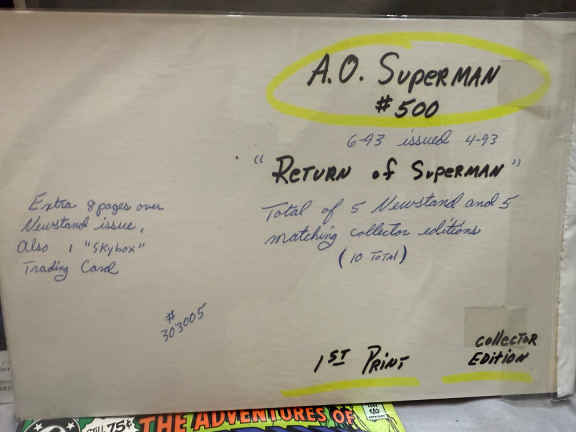 A.O. SUPERMAN
#500
6-93 issued 4-93
"RETURN of SUPERMAN"
Total of 5 Newstand and 5
matching collector editions
(10 TOTAL)
Extra 8 pages over
Newstand issue,
Also 1 "Skybox"
Trading Card
#
303005
1ST PRINT
COLLECTOR
EDITION
75¢
THE ADVENTURES OF